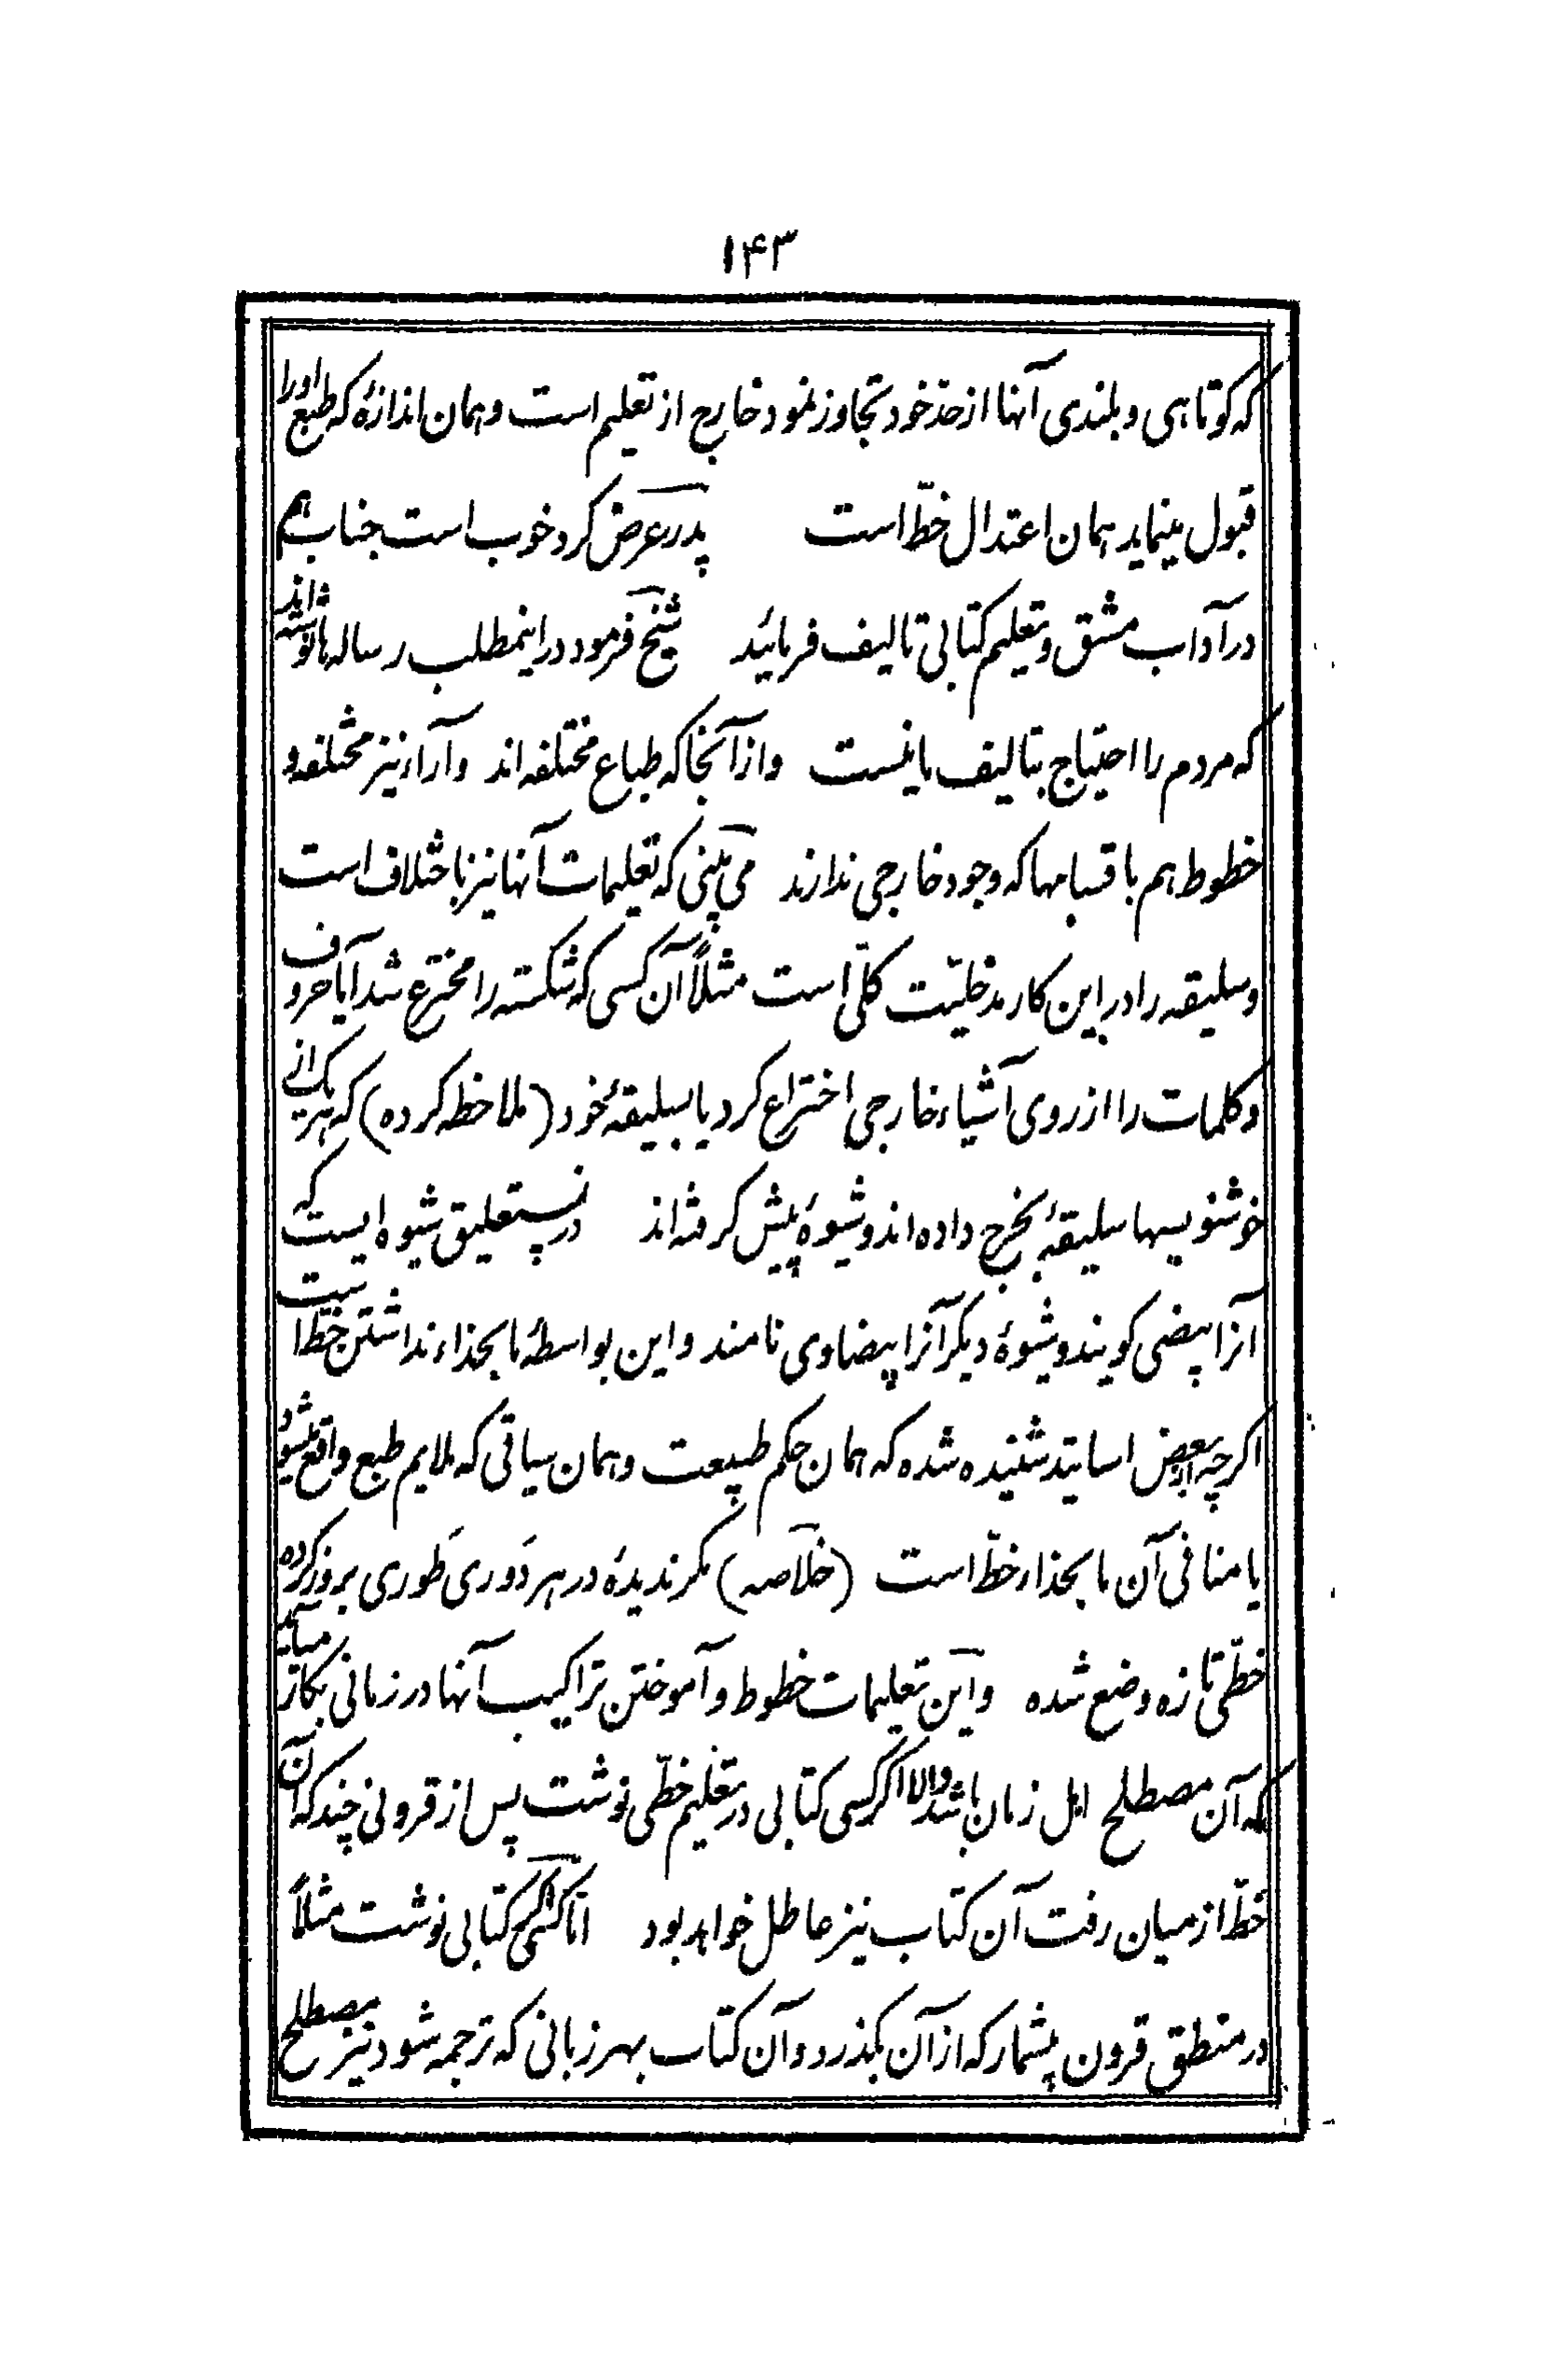 ۱۴۳
که کوتاهی و بلندی آنها از حدّ خود تجاوز نمود خارج از تعلیم است و همان اندازهٔ که طبع اورا
قبول مینماید همان اعتدال خطّ است پدر عرض کرد خوب است جناب هم
در آداب مشق و تعلیم کتابی تالیف فرمائید شیخ فرمود در اینمطلب رساله ها نوشته اند
که مردم را احتیاج بتالیف ما نیست و از آنجا که طباع مختلفه اند و آراء نیز مختلفه و
خطوط هم باقسامها که وجود خارجی ندارند می بینی که تعلیمات آنها نیز باختلاف است
و سلیقه را در این کار مدخلیّت کلّی است مثلاً آن کسی که شکسته را مخترع شد آیا حروف
و کلمات را از روی اشیاء خارجی اختراع کرد یا بسلیقهٔ خود (ملاحظه کرده) که هریک از
خوشنویسها سلیقهٔ بخرج داده اند و شیوهٔ پیش گرفته اند در نستعلیق شیوه ایست که
آنرا بیضی کویند و شیوهٔ دیکر آنرا بیضاوی نامند و این بواسطهٔ مابحذاء نداشتن خطّ است
اکرچه از بعض اساتید شنیده شده که همان حکم طبیعت و همان سیاقی که ملایم طبع واقع میشود
یا منافی آن مابحذاء خطّ است (خلاصه) مکر ندیدهٔ در هر دَوری طَوری بروز کرده
خطّی تازه وضع شده و این تعلیمات خطوط و آموختن تراکیب آنها در زمانی بکار میآید
که آن مصطلح اهل زمان باشد والا اکر کسی کتابی در تعلیم خطّی نوشت پس از قرونی چند که آن
خطّ از میان رفت آن کتاب نیز عاطل خواهد بود امّا اکر کسی کتابی نوشت مثلاً
در منطق قرون بیشمار که از آن بکذرد و آن کتاب بهر زبانی که ترجمه شود نیز مصطلح